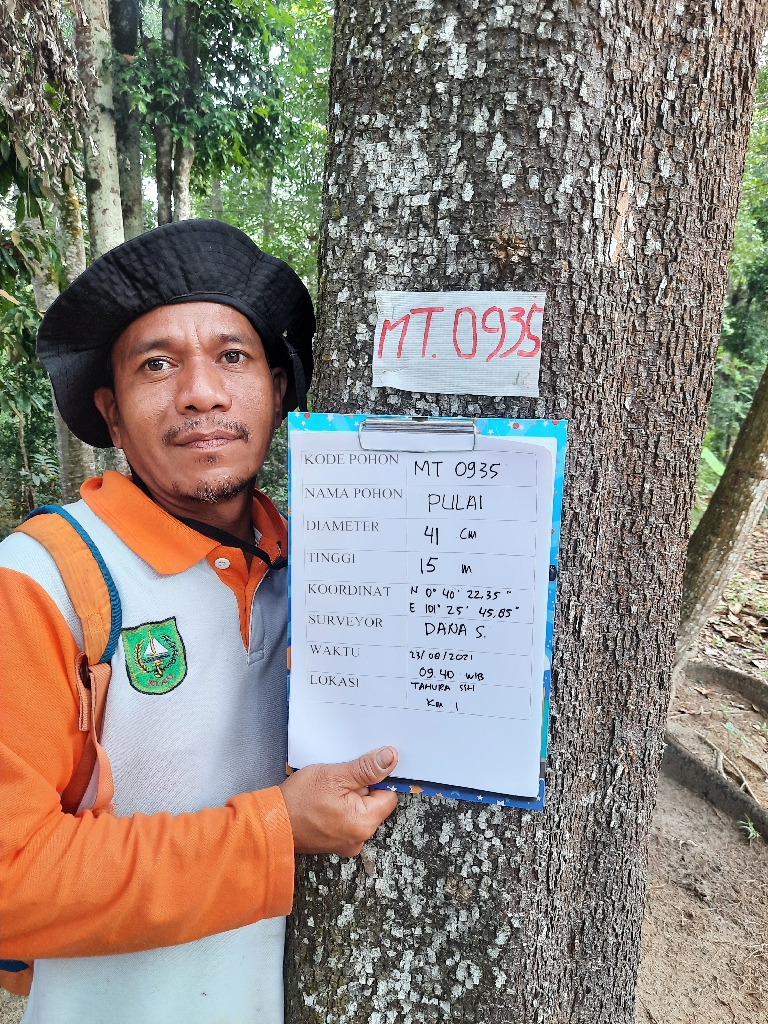 MT. 0935
KODE POHON MT 0935
NAMA POHON PULAI
DIAMETER 41 cm
TINGGI 15 m
KOORDINAT N 0° 40' 22,35 "
E 101° 25' 45,85"
SURVEYOR DANA S.
WAKTU 23/08/2021
09.40 WIB
LOKASI TAHURA SSH
Km 1
RIAU